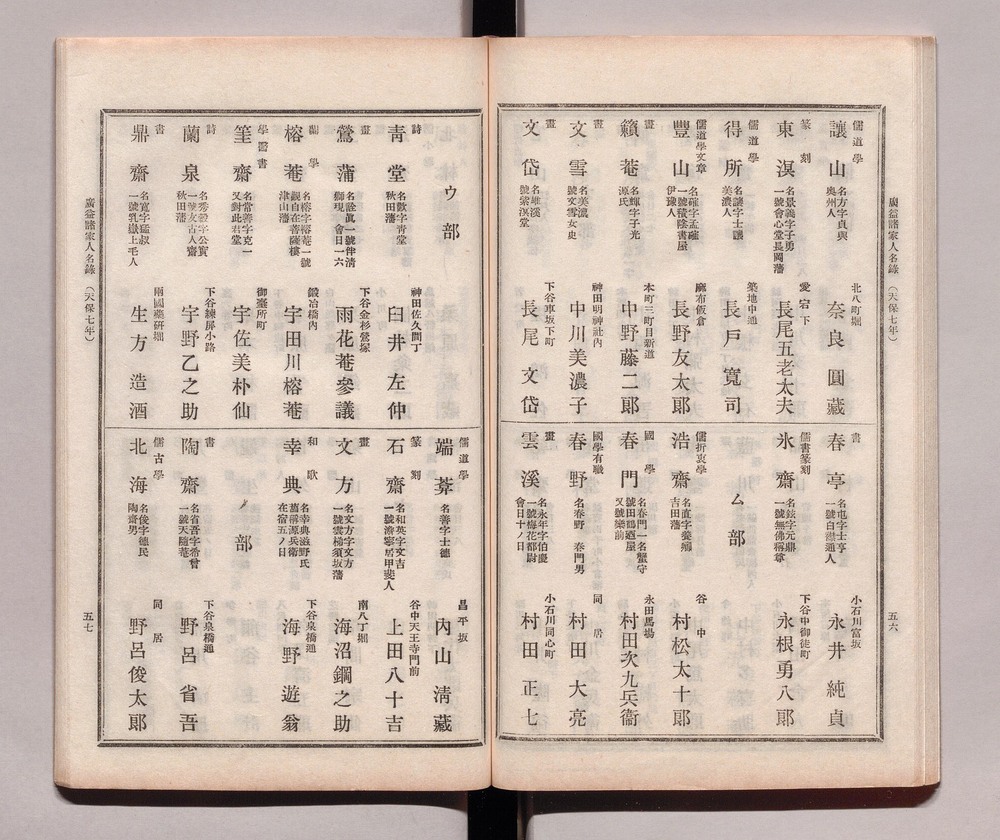 廣益諸家人名錄(天保七年)
五六
儒道學
讓山 名方字貞與
奥州人
北八町堀
奈良圓藏
篆刻
東溟 名景義字子勇
一號會心堂長岡藩
愛宕下
長尾五老太夫
儒道學
得所 名讓字士讓
美濃人
築地中通
長戸寬司
儒道學文章
豐山 名確字孟確
一號積陰書屋
伊豫人
麻布飯倉
長野友太郎
畫
籟菴 名輝字子光
源氏
本町三町目新道
中野藤二郎
畫
文雪 名美濃
號文雪女史
神田明神社內
中川美濃子
畫
文岱 名維溪
號紫溟堂
下谷車坂下町
長尾文岱
書
春亭 小石川富坂
永井純貞
儒書篆刻
氷齋 名鉉字元鼎
下谷中御徒町
永根勇八郎
ム部
儒折衷學
浩齋 名直字養順
吉田藩
谷中
村松太十郎
國學
春門 名春門一名蟹守
又號樂前
永田馬場
村田次九兵衞
國學有職
春野 名春野 春門男
同居
村田大亮
畫
雲溪 名永年字伯慶
一號梅花都尉
會日十ノ日
小石川同心町
村田正七
ウ部
詩
靑堂 名歡字靑堂
秋田藩
神田佐久間丁
臼井左仲
畫
鶯蒲 名詮眞一號伴淸
獅現 會日一六
下谷金杉鶯塚
雨花菴參議
蘭學
榕菴 名榕字榕菴一號
觀自在菩薩樓
津山藩
鍛冶橋內
宇田川榕菴
學醫書
篁齋 名常善字克一
又對此君堂
御臺所町
宇佐美朴仙
詩
蘭泉 名秀發字公實
一號友古人齋
秋田藩
下谷練屏小路
宇野乙之助
書
鼎齋 名寬字猛叔
一號乳嶽上毛人
兩國藥研堀
生方造酒
儒道學
端莾 名善字士德
昌平坂
內山淸藏
篆刻
石齋 名和英字文吉
谷中天王寺門前
上田八十吉
畫
文方 名文方字文方
一號雲梯須坂藩
南八丁堀
海沼鋼之助
和歌
幸典 名幸典滋野氏
在宿五ノ日
下谷泉橋通
海野遊翁
ノ部
書
陶齋 名省吾字希曾
一號天隨菴
下谷泉橋通
野呂省吾
儒古學
北海 名俊字德民
陶齋男
同居
野呂俊太郎
廣益諸家人名錄(天保七年)
五七